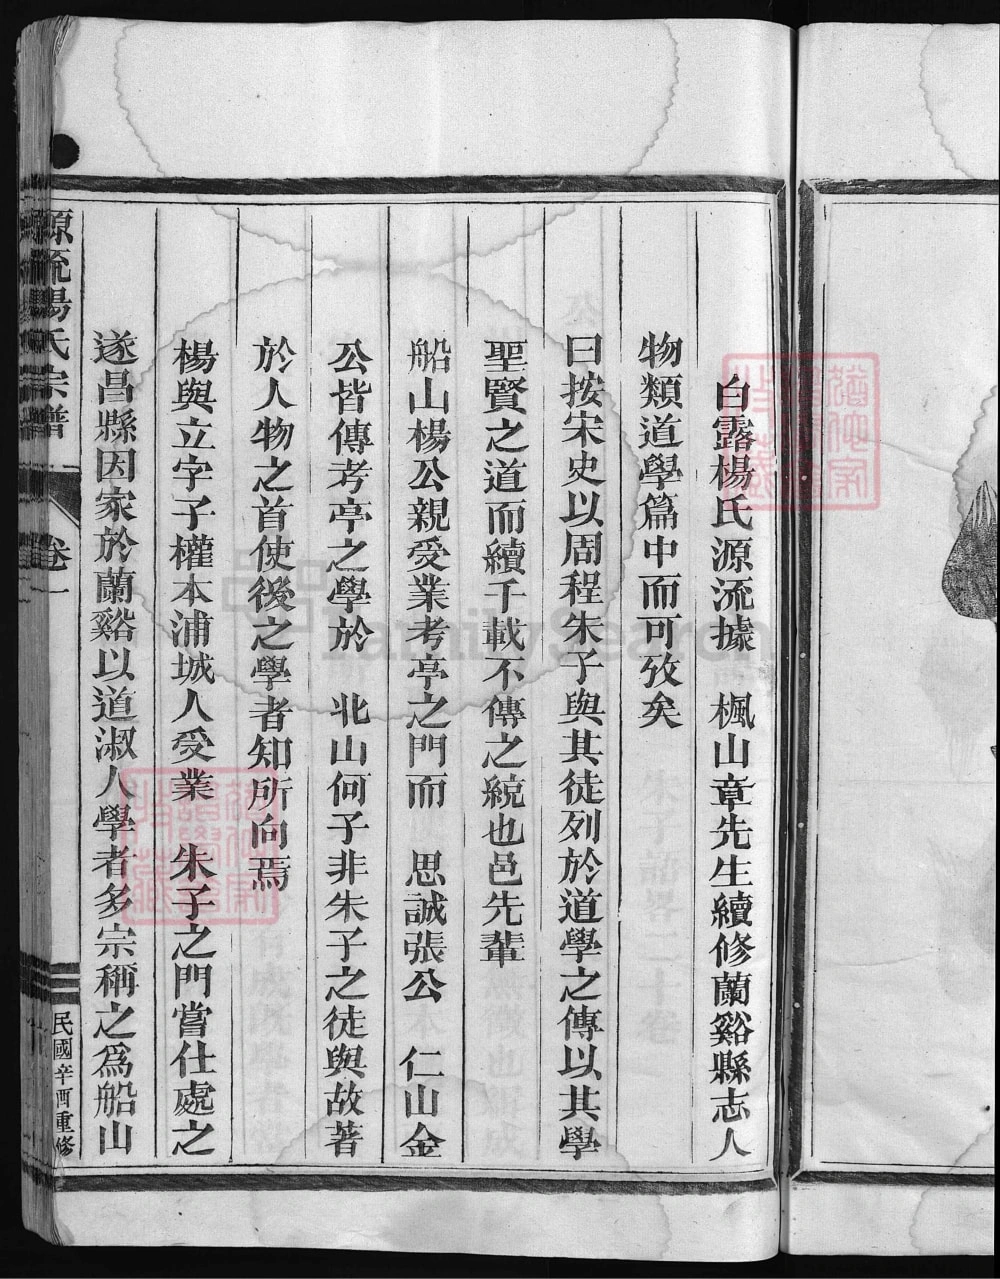 白露楊氏源流據　楓山章先生續修蘭谿縣志人
物類道學篇中而可攷矣
曰按宋史以周程朱子與其徒列於道學之傳以其學
聖賢之道而續千載不傳之統也邑先輩
船山楊公親受業考亭之門而　思誠張公　仁山金
公皆傳考亭之學於　北山何子非朱子之徒與故著
於人物之首使後之學者知所向焉
楊與立字子權本浦城人受業　朱子之門嘗仕處之
遂昌縣因家於蘭谿以道淑人學者多宗稱之爲船山
源流楊氏宗譜　卷一　民國辛酉重修
FamilySearch